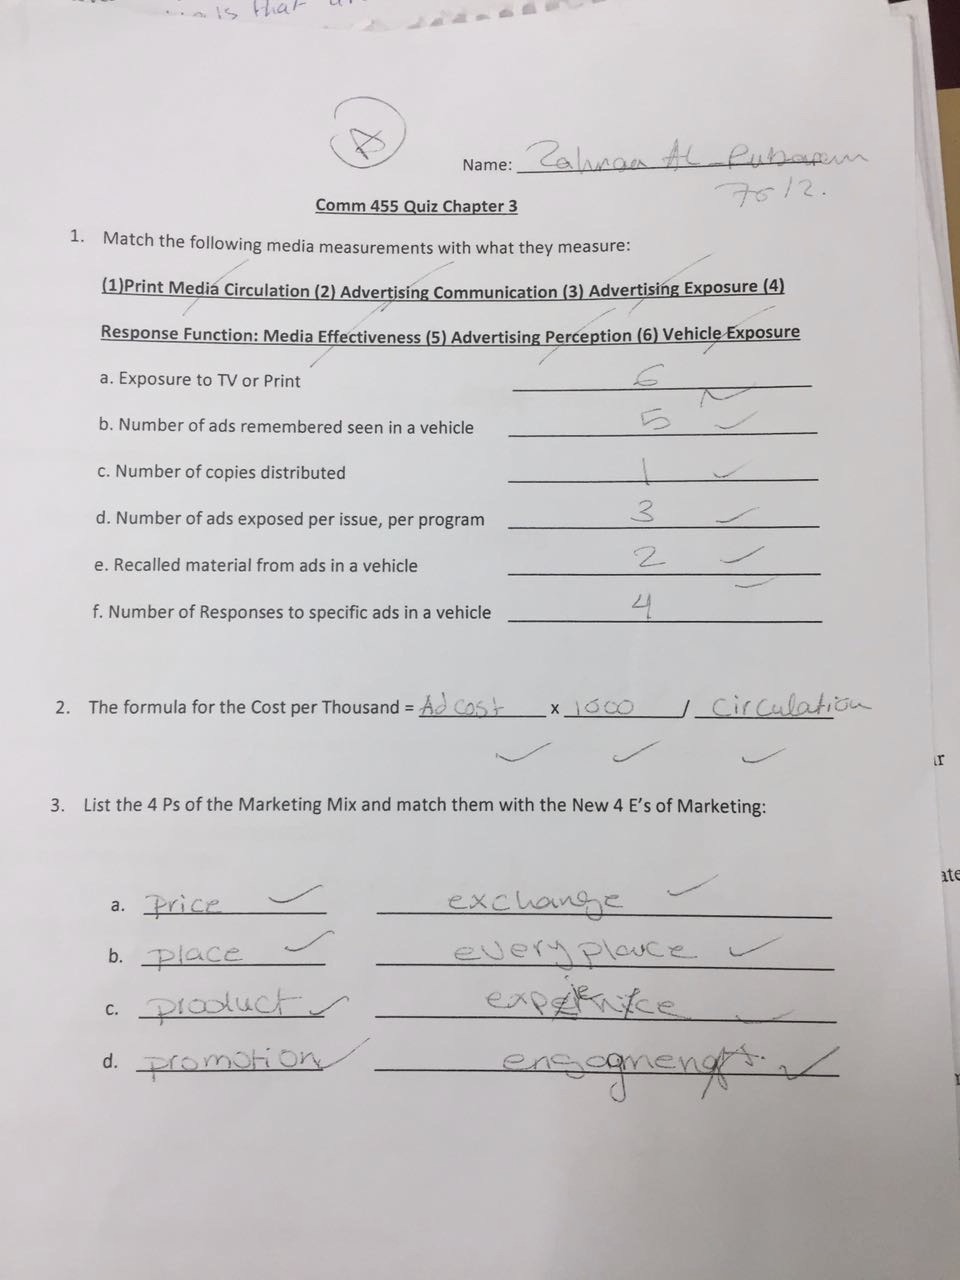 is that
A
Name: Al
7012.
Comm 455 Quiz Chapter 3
1. Match the following media measurements with what they measure:
(1)Print Media Circulation (2) Advertising Communication (3) Advertising Exposure (4)
Response Function: Media Effectiveness (5) Advertising Perception (6) Vehicle Exposure
a. Exposure to TV or Print 6
b. Number of ads remembered seen in a vehicle 5
c. Number of copies distributed 1
d. Number of ads exposed per issue, per program 3
e. Recalled material from ads in a vehicle 2
f. Number of Responses to specific ads in a vehicle 4
2. The formula for the Cost per Thousand = Ad cost x 1000 / Circulation
3. List the 4 Ps of the Marketing Mix and match them with the New 4 E's of Marketing:
a. price exchange
b. place everyplace
c. product
d. promotion